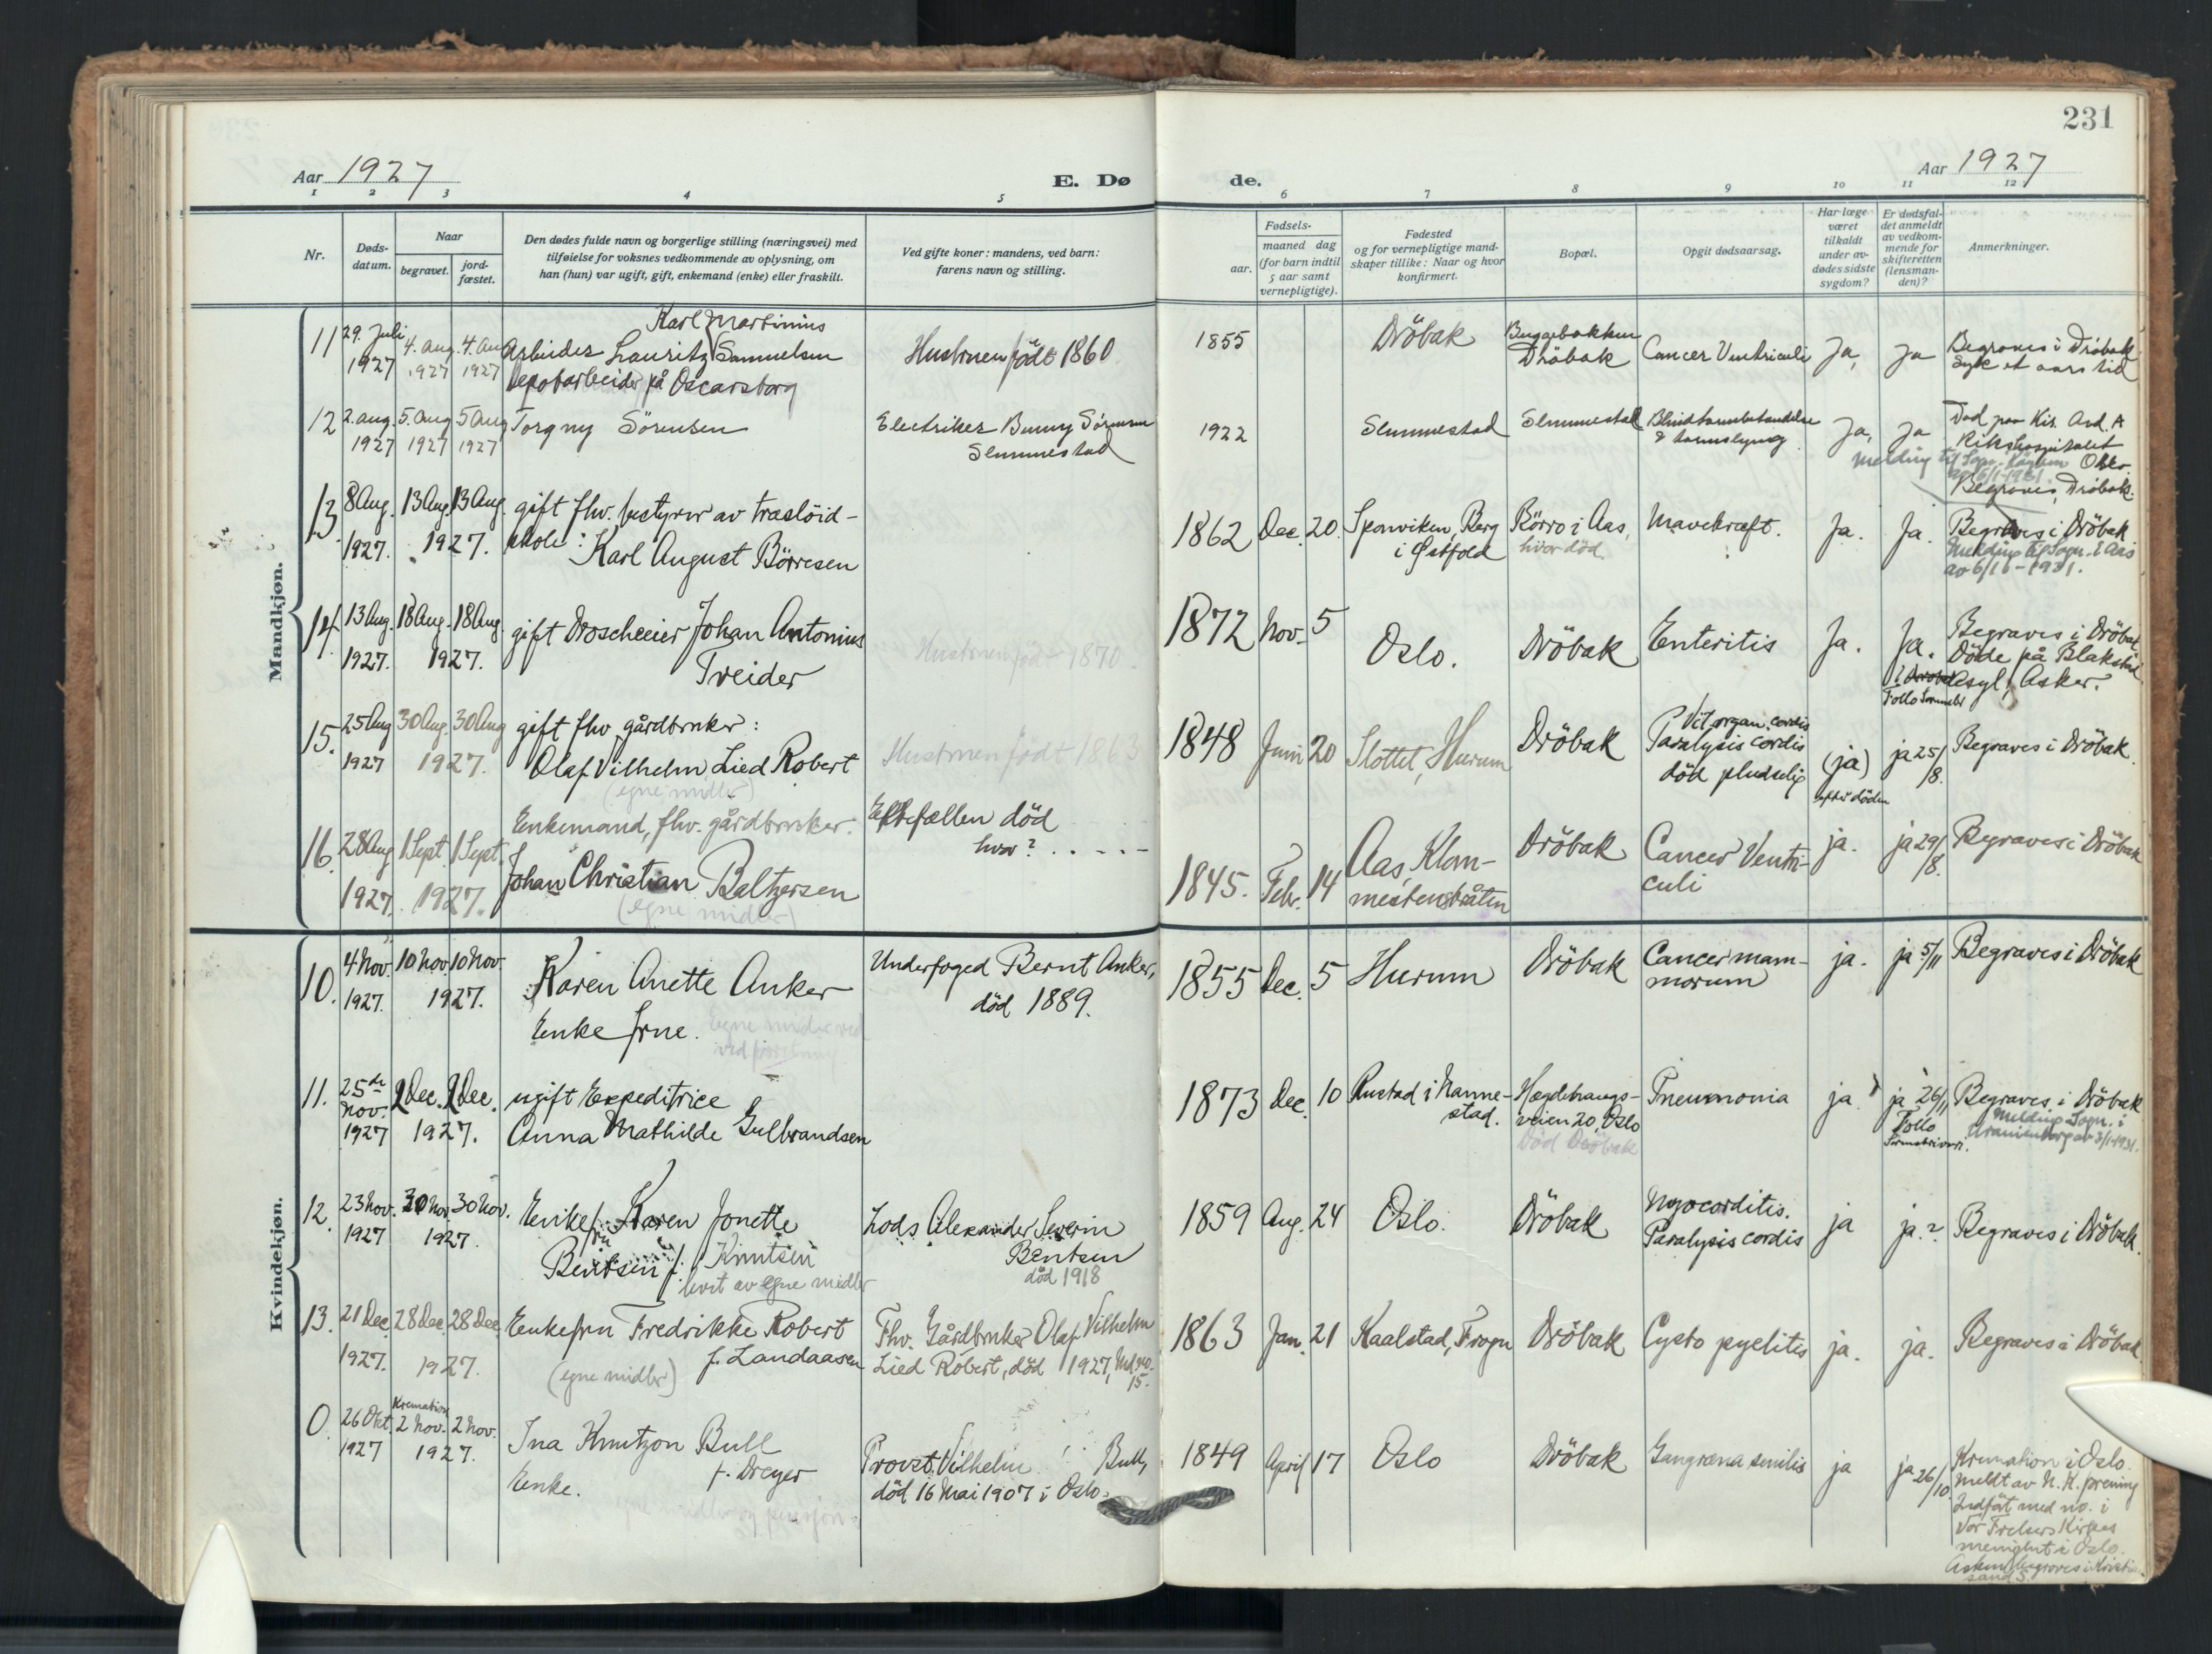 231
Aar 1927
E. Dø
de.
Aar 1927
1 2 3 4 5 6 7 8 9 10 11 12
Nr.
Døds-
datum.
Naar
begravet.
jord-
fæstet.
Den dødes fulde navn og borgerlige stilling (næringsvei) med
tilføielse for voksnes vedkommende av oplysning, om
han (hun) var ugift, gift, enkemand (enke) eller fraskilt.
Ved gifte koner: mandens, ved barn:
farens navn og stilling.
Fødsels-
aar.
maaned dag
(for barn indtil
5 aar samt
vernepligtige).
Fødested
og for vernepligtige mand-
skaper tillike: Naar og hvor
konfirmert.
Bopæl.
Opgit dødsaarsag.
Har læge
været
tilkaldt
under av-
dødes sidste
sygdom?
Er dødsfal-
det anmeldt
av vedkom-
mende for
skifteretten
(lensman-
den)?
Anmerkninger.
Mandkjøn.
11 29. Juli 1927 4. aug. 1927 4. Aug 1927
Karl Martinius
Arbeider Lauritz Samuelsen
Depotarbeider på Oscarsborg
Hustruen født 1860
1855
Dröbak
Dröbak
Cancer Ventriculi
Ja,
Ja
Begraves i Dröbak
Syk et aars tid
12 2. aug. 1927 5. Aug 1927 5 Aug 1927
Torgny Sörensen
Electriker Bunny Sörensen
Slemmestad
1922
Slemmestad
Slemmestad
Blindtarmbetændelse
& tarmslyng
Ja,
Ja
Död paa Kir. Avd. A
Rikshospitalet
Oslo.
Begraves Dröbak.
13 8 Aug. 1927. 13 Aug. 13 Aug. 1927.
gift fhv. bestyrer av traslöid-
skole: Karl August Börresen
1862 Dec. 20.
Sponviken, Berg
i Østfold
Körro i Aas,
hvor död
Mavekræft.
Ja.
Ja.
Begraves i Dröbak
Melding til Sogn. i Aas
14. 13 Aug. 1927. 18 Aug. 18 Aug. 1927.
gift Droscheeier Johan Antonius
Treider
Hustruen født 1870.
1872 Nov. 5
Oslo.
Dröbak
Enteritis
Ja.
Ja.
Begraves i Dröbak.
Döde på Blakstad
asyl, Asker.
15. 25 Aug 1927 30 Aug. 30 Aug 1927.
gift fhv gårdbruker:
Olaf Vilhelm Lied Robert
(egne midler)
Hustruen født 1863
1848 Juni 20
Slottet, Hurum
Dröbak
Vit. organ. cordis
Paralysis cordis
död pludselig
(ja)
efter döden
ja 25/8.
Begraves i Dröbak.
16. 28 Aug 1927. 1 Sept. 1 Sept. 1927.
Enkemand, fhv. gårdbruker.
Johan Christian Baltzersen
(egne midler)
Ektefællen död
hvor? . . . .
1845. Febr. 14
Aas, Klom-
mestensbråten
Dröbak
Cancer Ventri-
culi
ja.
ja 29/8.
Begraves i Dröbak
Kvindekjøn.
10. 4 Nov. 1927. 10 Nov. 10 Nov. 1927.
Karen Anette Anker
Enke frue.
Underfoged Bernt Anker,
död 1889.
1855 Dec. 5
Hurum
Dröbak
Cancer mam-
morum
ja.
ja 5/11
Begraves i Dröbak
11. 25de Nov. 1927 2 Dec. 2 Dec. 1927.
ugift Expeditrice
Anna Mathilde Gulbrandsen
1873 Dec. 10
Rustad i Nanne-
stad.
Hegdehaugs-
veien 20, Oslo
Död Dröbak
Pneumonia
ja.
ja 26/11
Follo
Sorenskriveri.
Begraves i Dröbak
Melding Sogn. i
Uranienborg av 3/1-1931.
12. 23 Nov. 1927 30 Nov. 30 Nov. 1927.
Enkefru Karen Jonette
Bentsen f. Knutsen
levet av egne midler
Lods Alexander Severin
Bentsen
död 1918
1859 Aug. 24
Oslo.
Dröbak
Myocorditis.
Paralysis cordis
ja
ja.?
Begraves i Dröbak.
13. 21 Dec. 1927. 28 Dec 28 Dec 1927.
Enkefru Fredrikke Robert
f. Landaasen
(egne midler)
Fhv. Gårdbruker Olaf Vilhelm
Lied Robert, död 1927,
1863 Jan. 21
Kaalstad, Frogn
Dröbak
Cysto pyelitis
ja.
ja.
Begraves i Dröbak.
0. 26 Okt. 1927 Kremation 2 Nov. 2 Nov. 1927.
Ina Knutzon Bull
f. Dreyer
Enke.
egne midler og pension
Provst Vilhelm Bull,
död 16 Mai 1907 i Oslo.
1849 April 17
Oslo
Dröbak
Gangræna senilis
ja
ja 26/10.
Kremation i Oslo.
Meldt av N. K. forening
Indfört med no. i
Vor Frelsers Kirkes
menighet i Oslo.
Asken begraves i Kristian-
sand S.